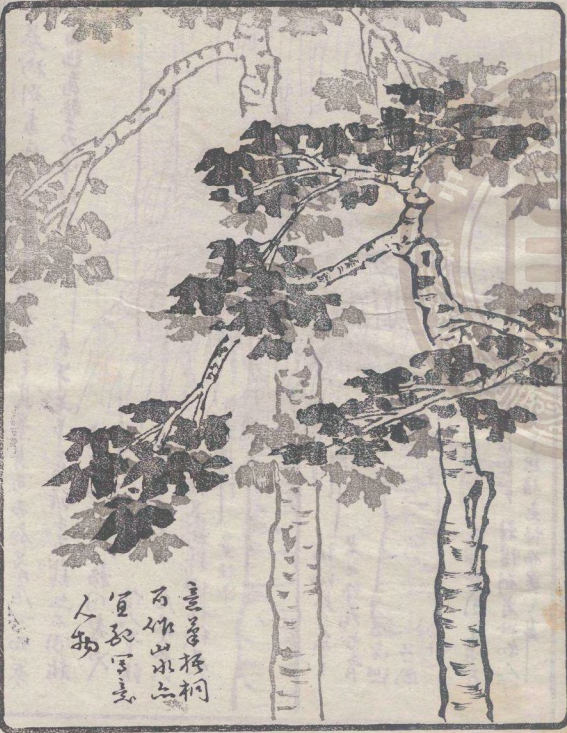 意筆梧桐
可作山水亦
宜配寫意
人物